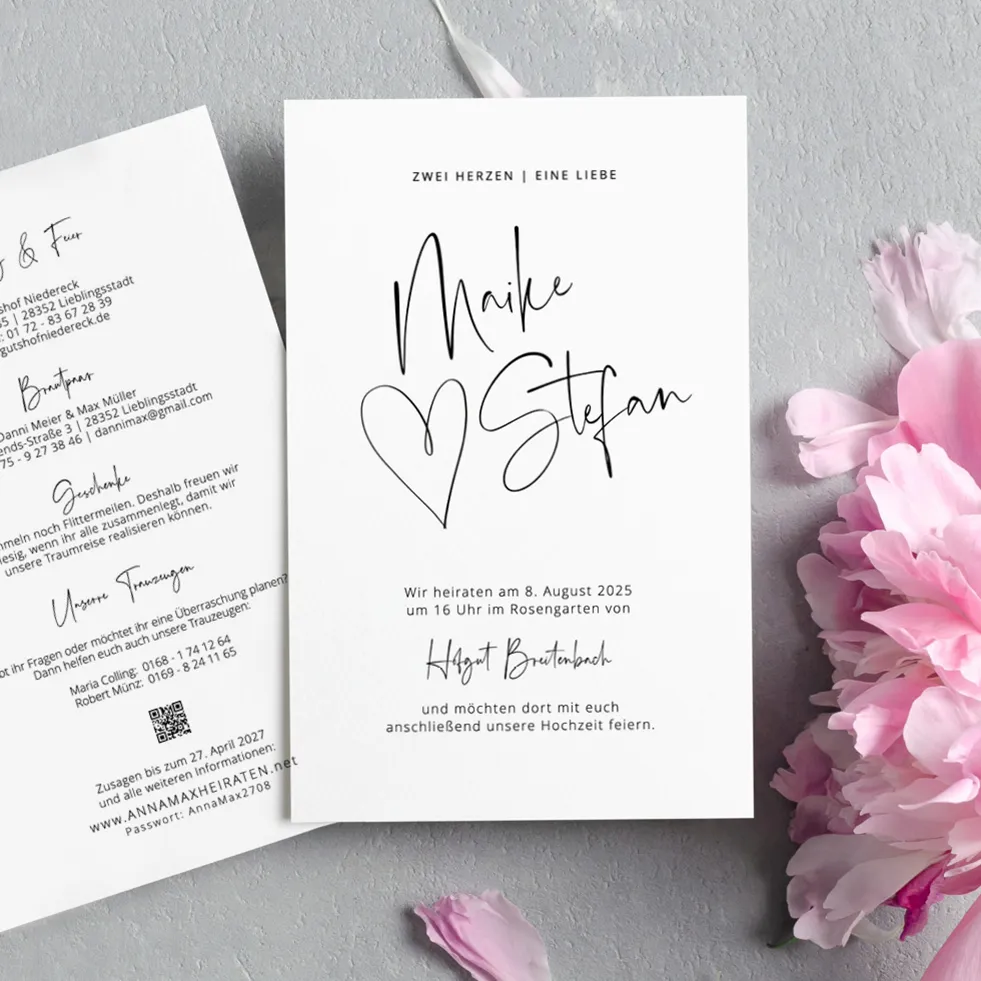 & Feier
shof Niedereck
5 | 28352 Lieblingsstadt
: 01 72 - 83 67 28 39
gutshofniedereck.de
Brautpaar
Danni Meier & Max Müller
ends-Straße 3 | 28352 Lieblingsstadt
75 - 9 27 38 46 | dannimax@gmail.com
Geschenke
mmeln noch Flittermeilen. Deshalb freuen wir
iesig, wenn ihr alle zusammenlegt, damit wir
unsere Traumreise realisieren können.
Unsere Trauzeugen
bt ihr Fragen oder möchtet ihr eine Überraschung planen?
Dann helfen euch auch unsere Trauzeugen:
Maria Colling: 0168 - 1 74 12 64
Robert Münz: 0169 - 8 24 11 65
Zusagen bis zum 27. April 2027
und alle weiteren Informationen:
www.ANNAMAXHEIRATEN.net
Passwort: AnnaMax2708
ZWEI HERZEN | EINE LIEBE
Maike
Stefan
Wir heiraten am 8. August 2025
um 16 Uhr im Rosengarten von
Hofgut Breitenbach
und möchten dort mit euch
anschließend unsere Hochzeit feiern.